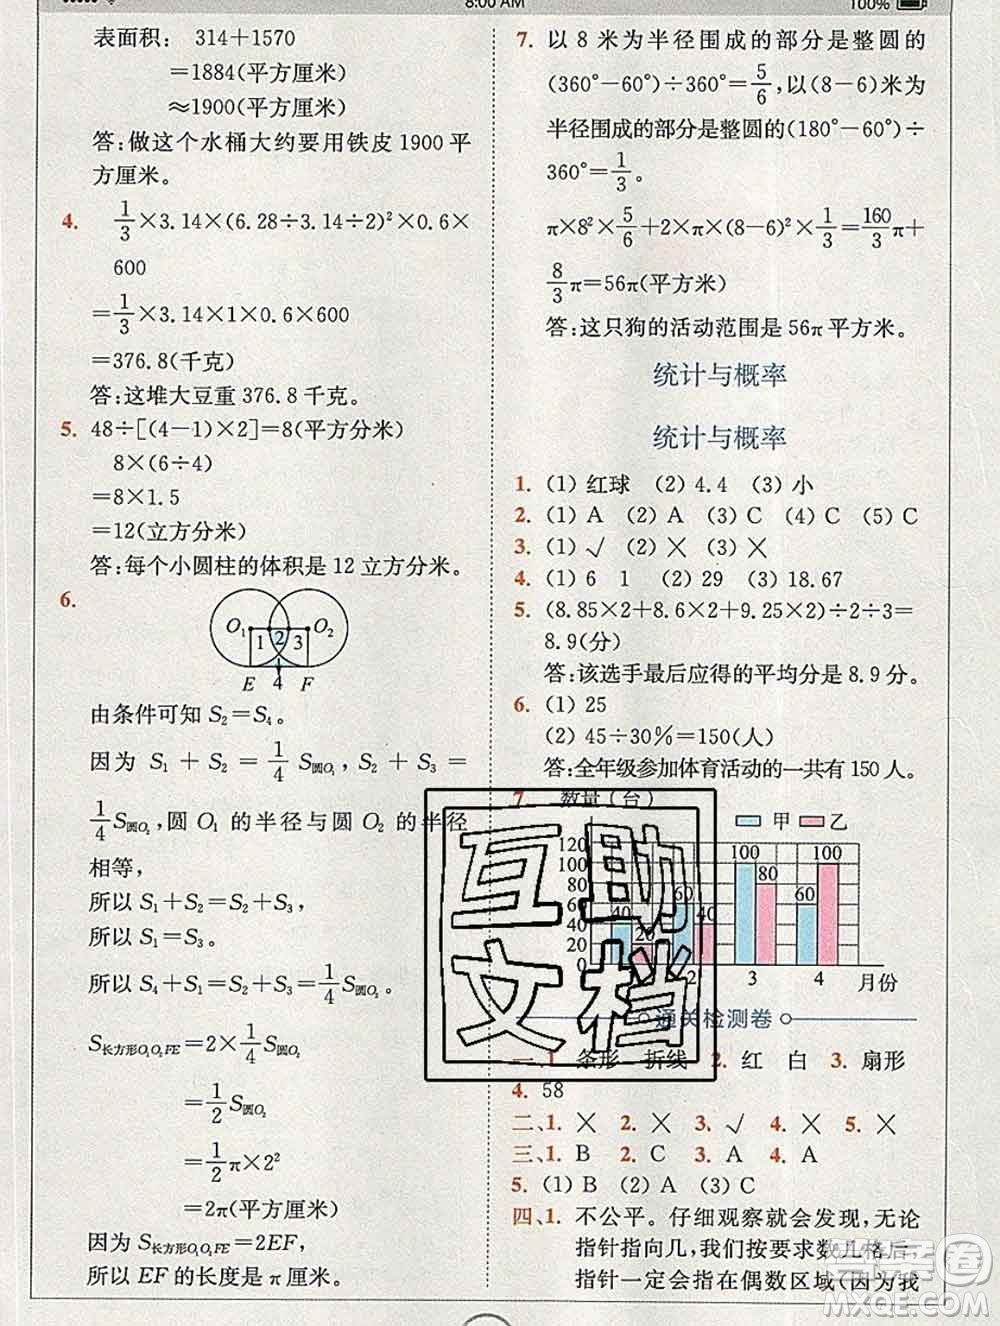 8:00 AM
100%
表面积： 314＋1570
＝1884(平方厘米)
≈1900(平方厘米)
答:做这个水桶大约要用铁皮 1900 平
方厘米。
4. 1/3×3.14×(6.28÷3.14÷2)²×0.6×
600
＝1/3×3.14×1×0.6×600
＝376.8(千克)
答:这堆大豆重 376.8 千克。
5. 48÷[(4－1)×2]＝8(平方分米)
8×(6÷4)
＝8×1.5
＝12(立方分米)
答:每个小圆柱的体积是 12 立方分米。
6.
O₁ 1 2 3 O₂
E 4 F
由条件可知 S₂＝S₄。
因为 S₁＋S₂＝1/4 S圆O₁, S₂＋S₃＝
1/4 S圆O₂,圆 O₁ 的半径与圆 O₂ 的半径
相等,
所以 S₁＋S₂＝S₂＋S₃,
所以 S₁＝S₃。
所以 S₄＋S₁＝S₂＋S₃＝1/4 S圆O₂。
S长方形O₁O₂FE＝2×1/4 S圆O₂
＝1/2 S圆O₂
＝1/2 π×2²
＝2π(平方厘米)
因为 S长方形O₁O₂FE＝2EF,
所以 EF 的长度是 π 厘米。
7. 以 8 米为半径围成的部分是整圆的
(360°－60°)÷360°＝5/6,以(8－6)米为
半径围成的部分是整圆的(180°－60°)÷
360°＝1/3。
π×8²×5/6＋2×π×(8－6)²×1/3＝160/3π＋
8/3π＝56π(平方米)
答:这只狗的活动范围是 56π 平方米。
统计与概率
统计与概率
1. (1) 红球 (2) 4.4 (3) 小
2. (1) A (2) A (3) C (4) C (5) C
3. (1) √ (2) × (3) ×
4. (1) 6 1 (2) 29 (3) 18.67
5. (8.85×2＋8.6×2＋9.25×2)÷2÷3＝
8.9(分)
答:该选手最后应得的平均分是 8.9 分。
6. (1) 25
(2) 45÷30%＝150(人)
答:全年级参加体育活动的一共有 150 人。
7. 数量(台)
甲 乙
120
100 100 100
80 80
60 60 60
40 40 40
20 20
0
2 3 4 月份
通关检测卷
一、1. 条形 折线 2. 红 白 3. 扇形
4. 58
二、1. × 2. × 3. √ 4. × 5. ×
三、1. B 2. C 3. A 4. A
5. (1) B (2) A (3) C
四、1. 不公平。仔细观察就会发现,无论
指针指向几,我们按要求数几格后,
指针一定会指在偶数区域(因为我
互助
文档
答案圈
MXQE.COM